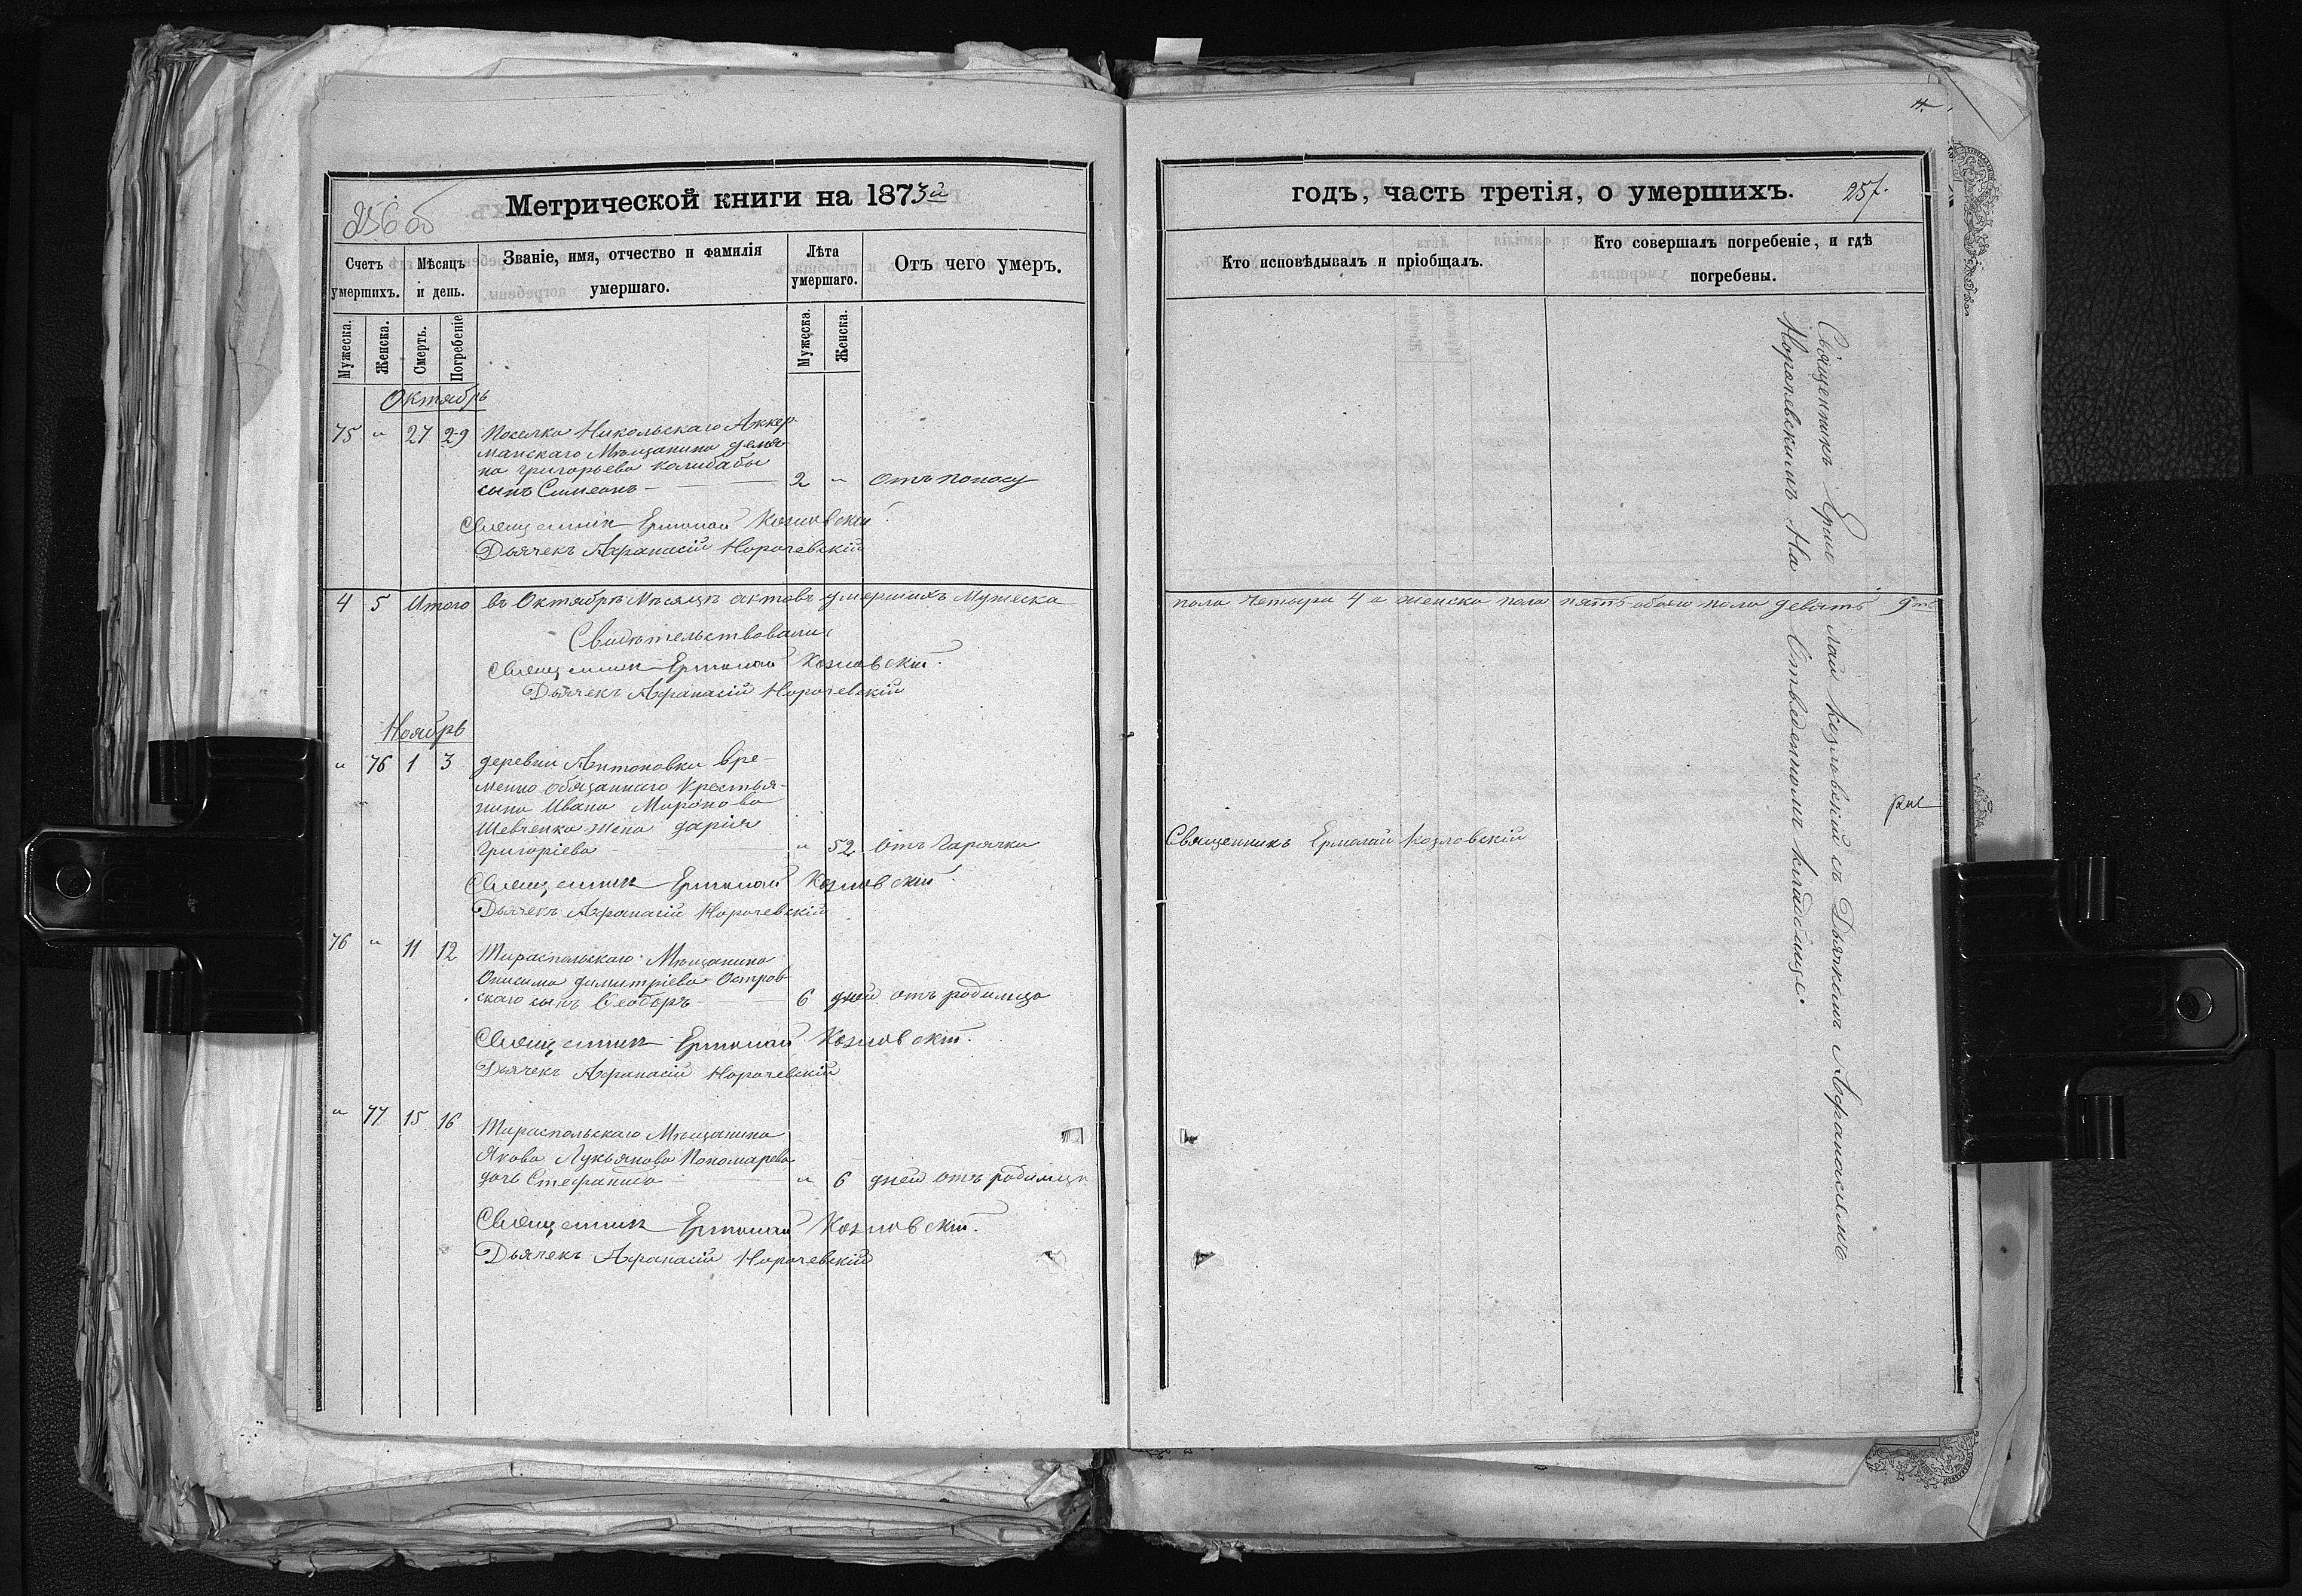 256 об
Метрической книги на 1873й
Счетъ умершихъ.
Мѣсяцъ и день.
Званіе, имя, отчество и фамилія умершаго.
Лѣта умершаго.
Отъ чего умеръ.
Мужеска.
Женска.
Смерть.
Погребеніе
Мужеска.
Женска.
Октябрь
75 " 27 29 Поселка Никольскаго Аккер-
манскаго Мѣщанина Демья-
на Григорьева Калибабы
сынъ Симеонъ — 2 " Отъ поносу
Священникъ Ермолай Козловскій.
Дьячекъ Афанасій Норочевскій
4 5 Итого въ Октябрѣ Мѣсяцѣ актовъ умершихъ Мужеска
Свидѣтельствовали:
Священникъ Ермолай Козловскій.
Дьячекъ Афанасій Норочевскій
Ноябрь
" 76 1 3 деревни Антоновки Вре-
менно обязаннаго Крестья-
нина Ивана Миронова
Шевченка жена Дарія
Григоріева " 52 Отъ Гарячки
Священникъ Ермолай Козловскій.
Дьячекъ Афанасій Норочевскій
76 " 11 12 Тираспольскаго Мѣщанина
Онисима Димитріева Остров-
скаго сынъ Ѳеодоръ 6 дней отъ родимца
Священникъ Ермолай Козловскій.
Дьячекъ Афанасій Норочевскій
" 77 15 16 Тираспольскаго Мѣщанина
Якова Лукьянова Пономарева
дочь Стефанида " 6 дней отъ родимца
Священникъ Ермолай Козловскій.
Дьячекъ Афанасій Норочевскій
годъ, часть третія, о умершихъ.
257.
Кто исповѣдывалъ и пріобщалъ.
Кто совершалъ погребеніе, и гдѣ
погребены.
пола Четыри 4 а женска пола пять обоего пола девять 9ть
Священникъ Ермолай Козловскій
Священникъ Ермолай Козловскій съ Дьячкомъ Афанасіемъ
Норочевскимъ На Отведенномъ кладбищѣ.